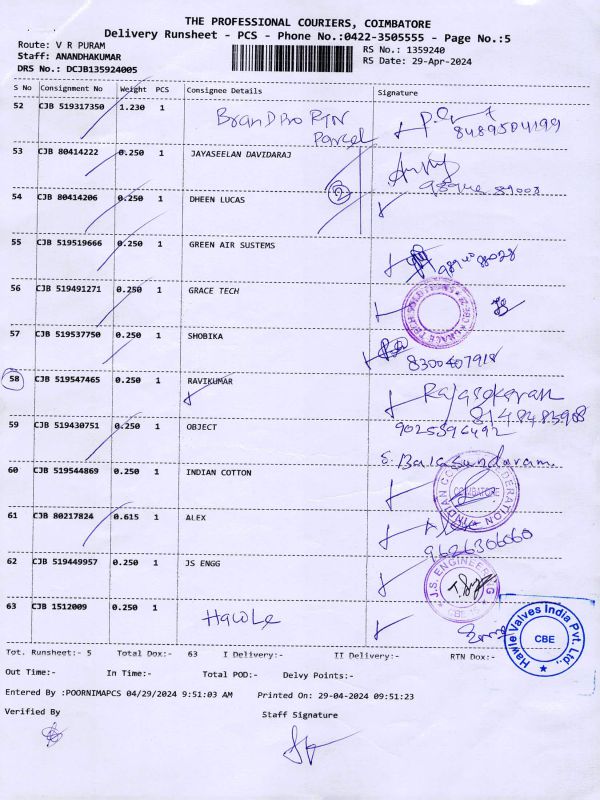 THE PROFESSIONAL COURIERS, COIMBATORE
Delivery Runsheet - PCS - Phone No.:0422-3505555 - Page No.:5
Route: V R PURAM
RS No.: 1359240
Staff: ANANDHAKUMAR
RS Date: 29-Apr-2024
DRS No.: DCJB135924005
S No Consignment No Weight PCS Consignee Details Signature
52 CJB 519317350 1.230 1 BranDPro RTN Parcel
8489504199
53 CJB 80414222 0.250 1 JAYASEELAN DAVIDARAJ
54 CJB 80414206 0.250 1 DHEEN LUCAS
2
55 CJB 519519666 0.250 1 GREEN AIR SUSTEMS
56 CJB 519491271 0.250 1 GRACE TECH
57 CJB 519537750 0.250 1 SHOBIKA
8300407918
58 CJB 519547465 0.250 1 RAVIKUMAR
Rajasekaran
8148483908
59 CJB 519430751 0.250 1 OBJECT
9025396492
60 CJB 519544869 0.250 1 INDIAN COTTON
S. Balasundaram.
COIMBATORE
61 CJB 80217824 0.615 1 ALEX
Alex
9626306060
62 CJB 519449957 0.250 1 JS ENGG
J.S. ENGINEERING
63 CJB 1512009 0.250 1 Hawle
Hawle Valves India Pvt. Ltd.,
CBE
Tot. Runsheet:- 5 Total Dox:- 63 I Delivery:- II Delivery:- RTN Dox:-
Out Time:- In Time:- Total POD:- Delvy Points:-
Entered By :POORNIMAPCS 04/29/2024 9:51:03 AM Printed On: 29-04-2024 09:51:23
Verified By Staff Signature